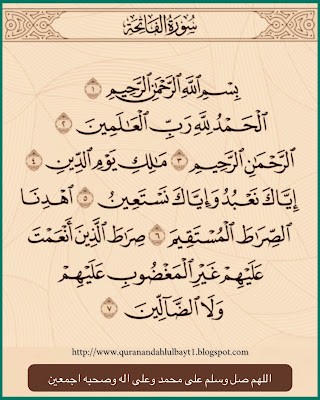 سُورَةُ الْفَاتِحَةِ
بِسْمِ ٱللَّهِ ٱلرَّحْمَٰنِ ٱلرَّحِيمِ ١
ٱلْحَمْدُ لِلَّهِ رَبِّ ٱلْعَٰلَمِينَ ٢
ٱلرَّحْمَٰنِ ٱلرَّحِيمِ ٣ مَٰلِكِ يَوْمِ ٱلدِّينِ ٤
إِيَّاكَ نَعْبُدُ وَإِيَّاكَ نَسْتَعِينُ ٥ ٱهْدِنَا
ٱلصِّرَٰطَ ٱلْمُسْتَقِيمَ ٦ صِرَٰطَ ٱلَّذِينَ أَنْعَمْتَ
عَلَيْهِمْ غَيْرِ ٱلْمَغْضُوبِ عَلَيْهِمْ
وَلَا ٱلضَّآلِّينَ ٧
http://www.quranandahlulbayt1.blogspot.com
اللهم صل وسلم على محمد وعلى اله وصحبه اجمعين